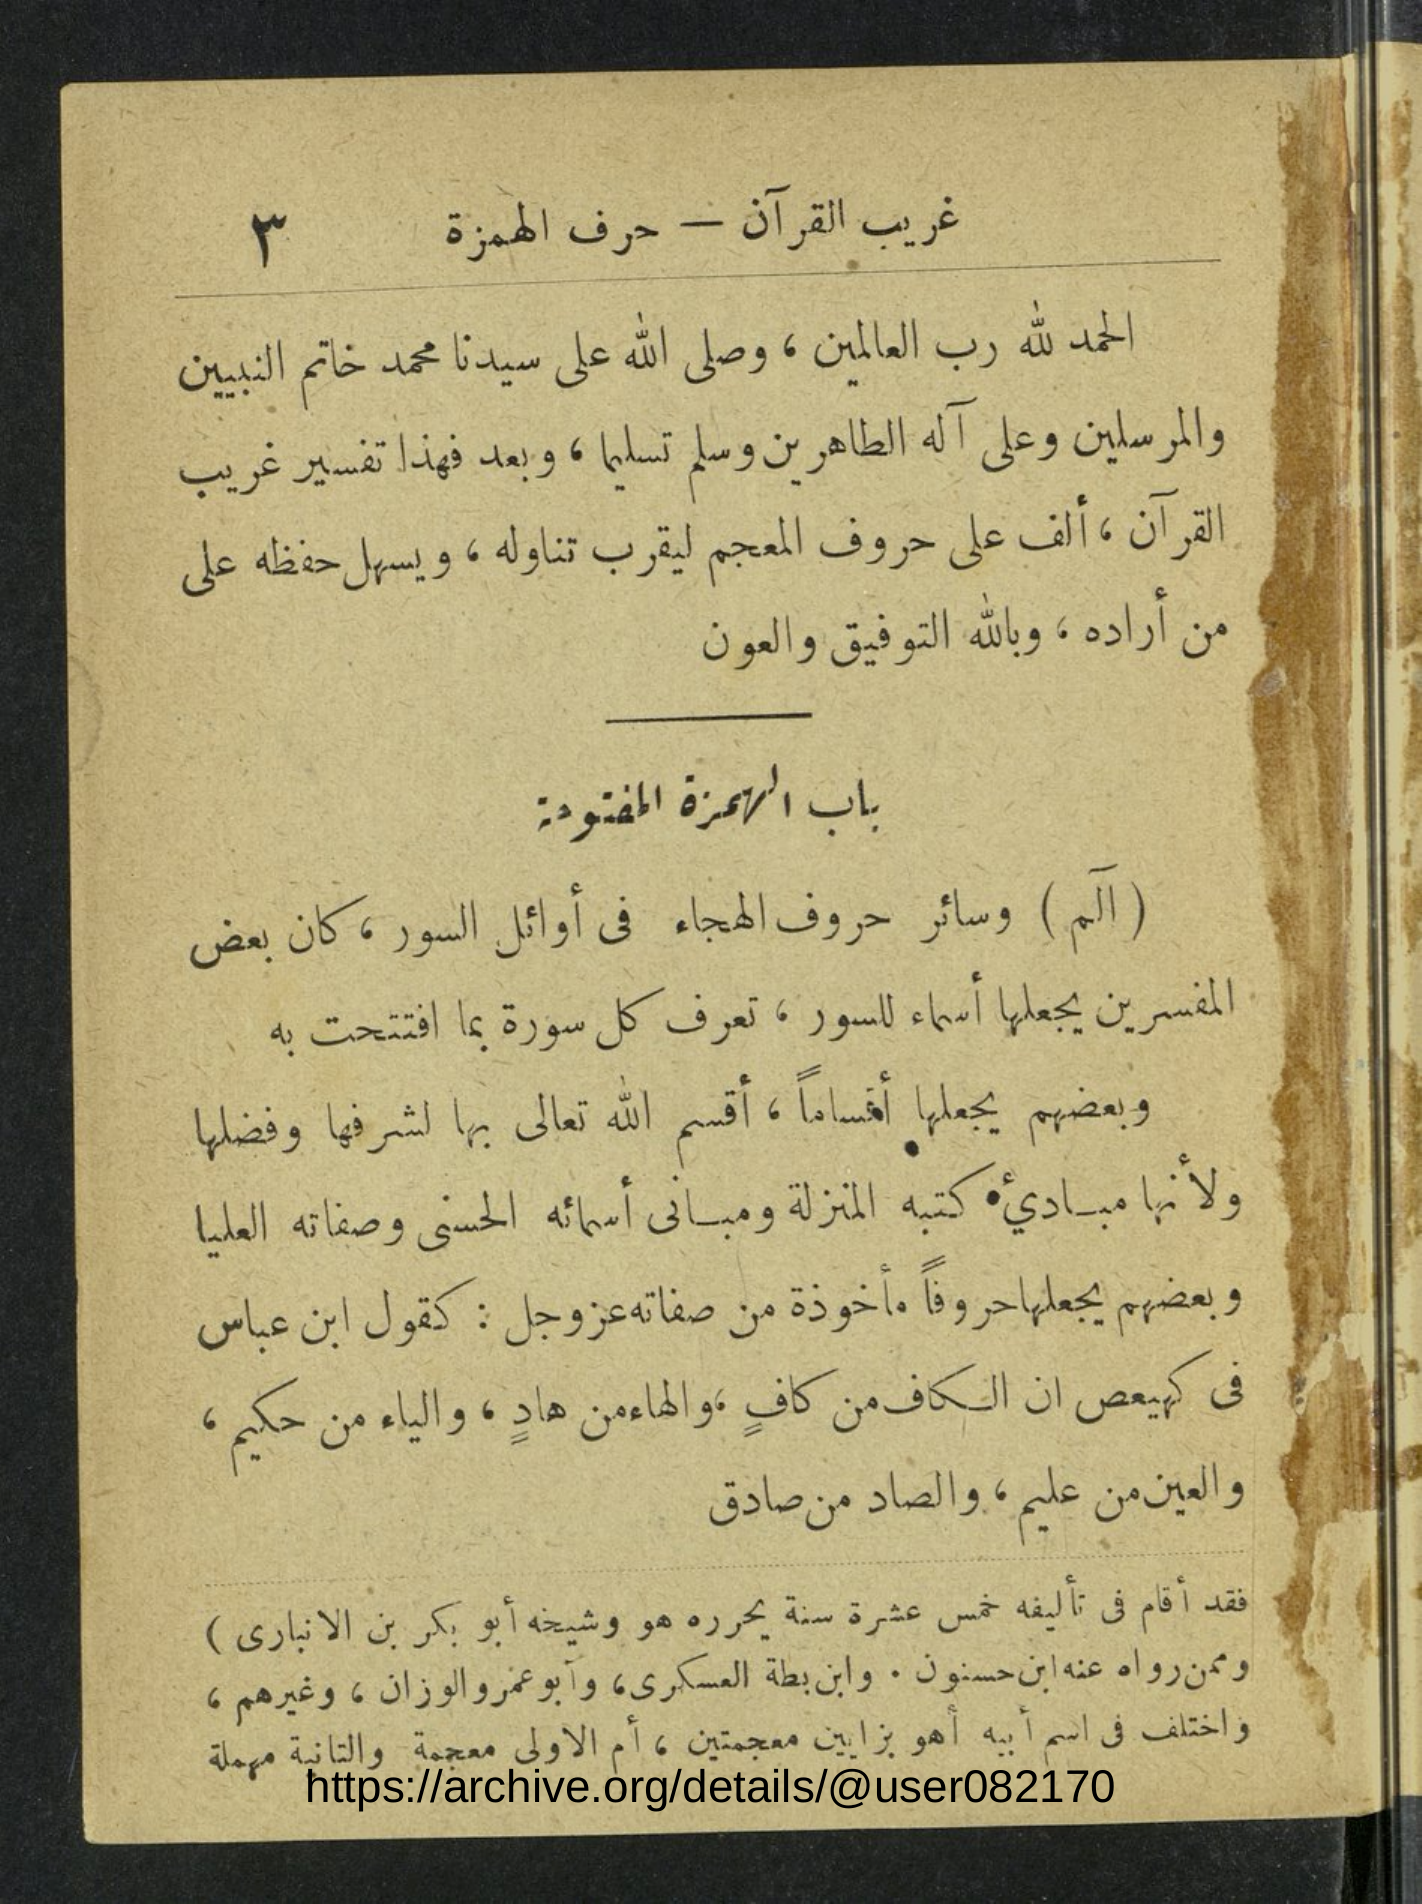 غريب القرآن — حرف الهمزة ٣
الحمد لله رب العالمين ، وصلى الله على سيدنا محمد خاتم النبيين
والمرسلين وعلى آله الطاهرين وسلم تسليما ، وبعد فهذا تفسير غريب
القرآن ، ألف على حروف المعجم ليقرب تناوله ، ويسهل حفظه على
من أراده ، وبالله التوفيق والعون
باب الهمزة المفتوحة
( آلم ) وسائر حروف الهجاء فى أوائل السور ، كان بعض
المفسرين يجعلها أسماء للسور ، تعرف كل سورة بما افتتحت به
وبعضهم يجعلها أقساماً ، أقسم الله تعالى بها لشرفها وفضلها
ولأنها مبادئ كتبه المنزلة ومبانى أسمائه الحسنى وصفاته العليا
وبعضهم يجعلها حروفاً مأخوذة من صفاته عز وجل : كقول ابن عباس
فى كهيعص ان الكاف من كافٍ ، والهاء من هادٍ ، والياء من حكيم ،
والعين من عليم ، والصاد من صادق
فقد أقام فى تأليفه خمس عشرة سنة يحرره هو وشيخه أبو بكر بن الانبارى )
وممن رواه عنه ابن حسنون . وابن بطة العسكرى ، وأبو عمرو الوزان ، وغيرهم ،
واختلف فى اسم أبيه أهو بزايين معجمتين ، أم الاولى معجمة والثانية مهملة
https://archive.org/details/@user082170